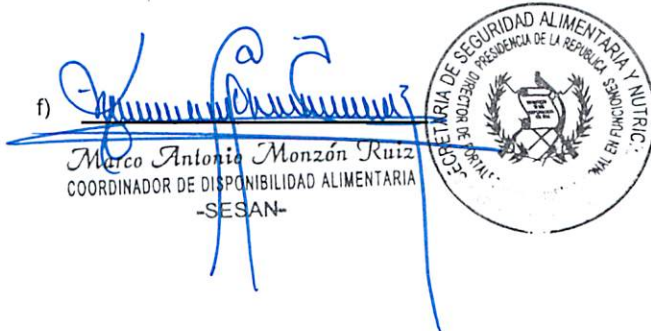 f)
Marco Antonio Monzón Ruiz
COORDINADOR DE DISPONIBILIDAD ALIMENTARIA
-SESAN-
SECRETARIA DE SEGURIDAD ALIMENTARIA Y NUTRIC
PRESIDENCIA DE LA REPUBLICA
DIRECTOR DE
EN FUNCIONES